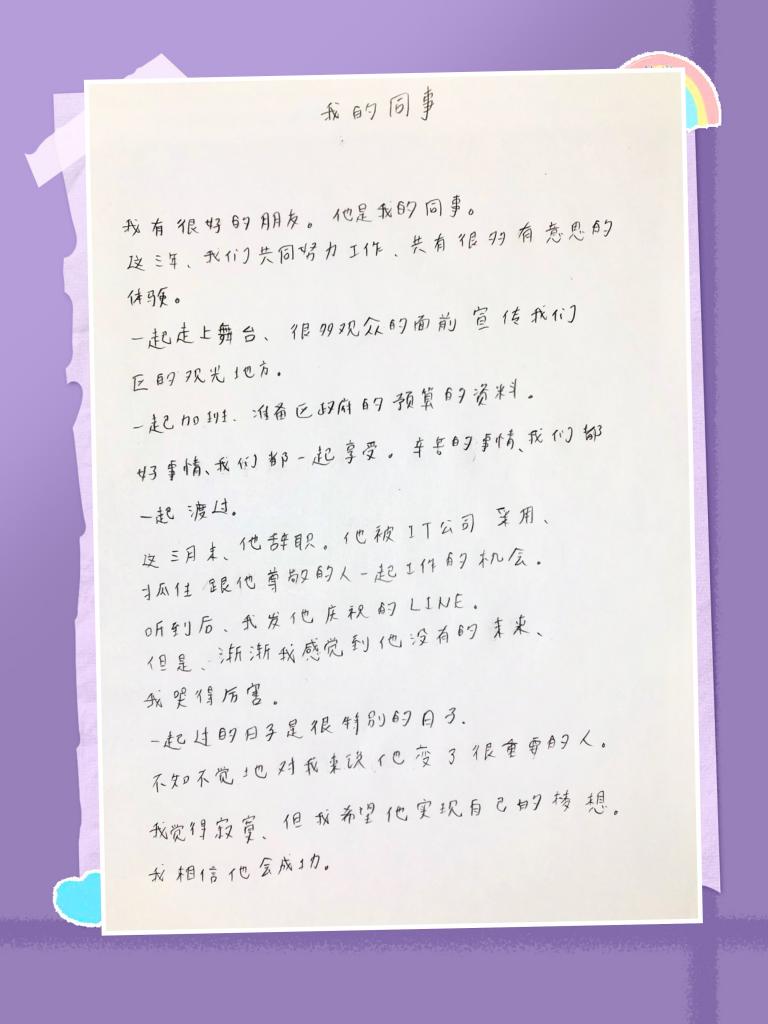 我的同事
我有很好的朋友。他是我的同事。
这三年、我们共同努力工作、共有很多有意思的
体验。
一起走上舞台、很多观众的面前宣传我们
区的观光地方。
一起加班、准备区政府的预算的资料。
好事情、我们都一起享受。辛苦的事情、我们都
一起渡过。
这三月末、他辞职。他被IT公司采用、
抓住跟他尊敬的人一起工作的机会。
听到后、我发他庆祝的LINE。
但是、渐渐我感觉到他没有的未来、
我哭得厉害。
一起过的日子是很特别的日子.
不知不觉地对我来说他变了很重要的人。
我觉得寂寞、但我希望他实现自己的梦想。
我相信他会成功。